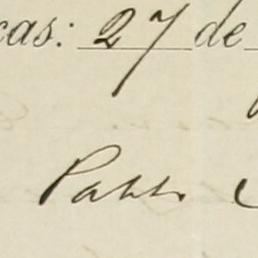 cas: 27 de
Pablo